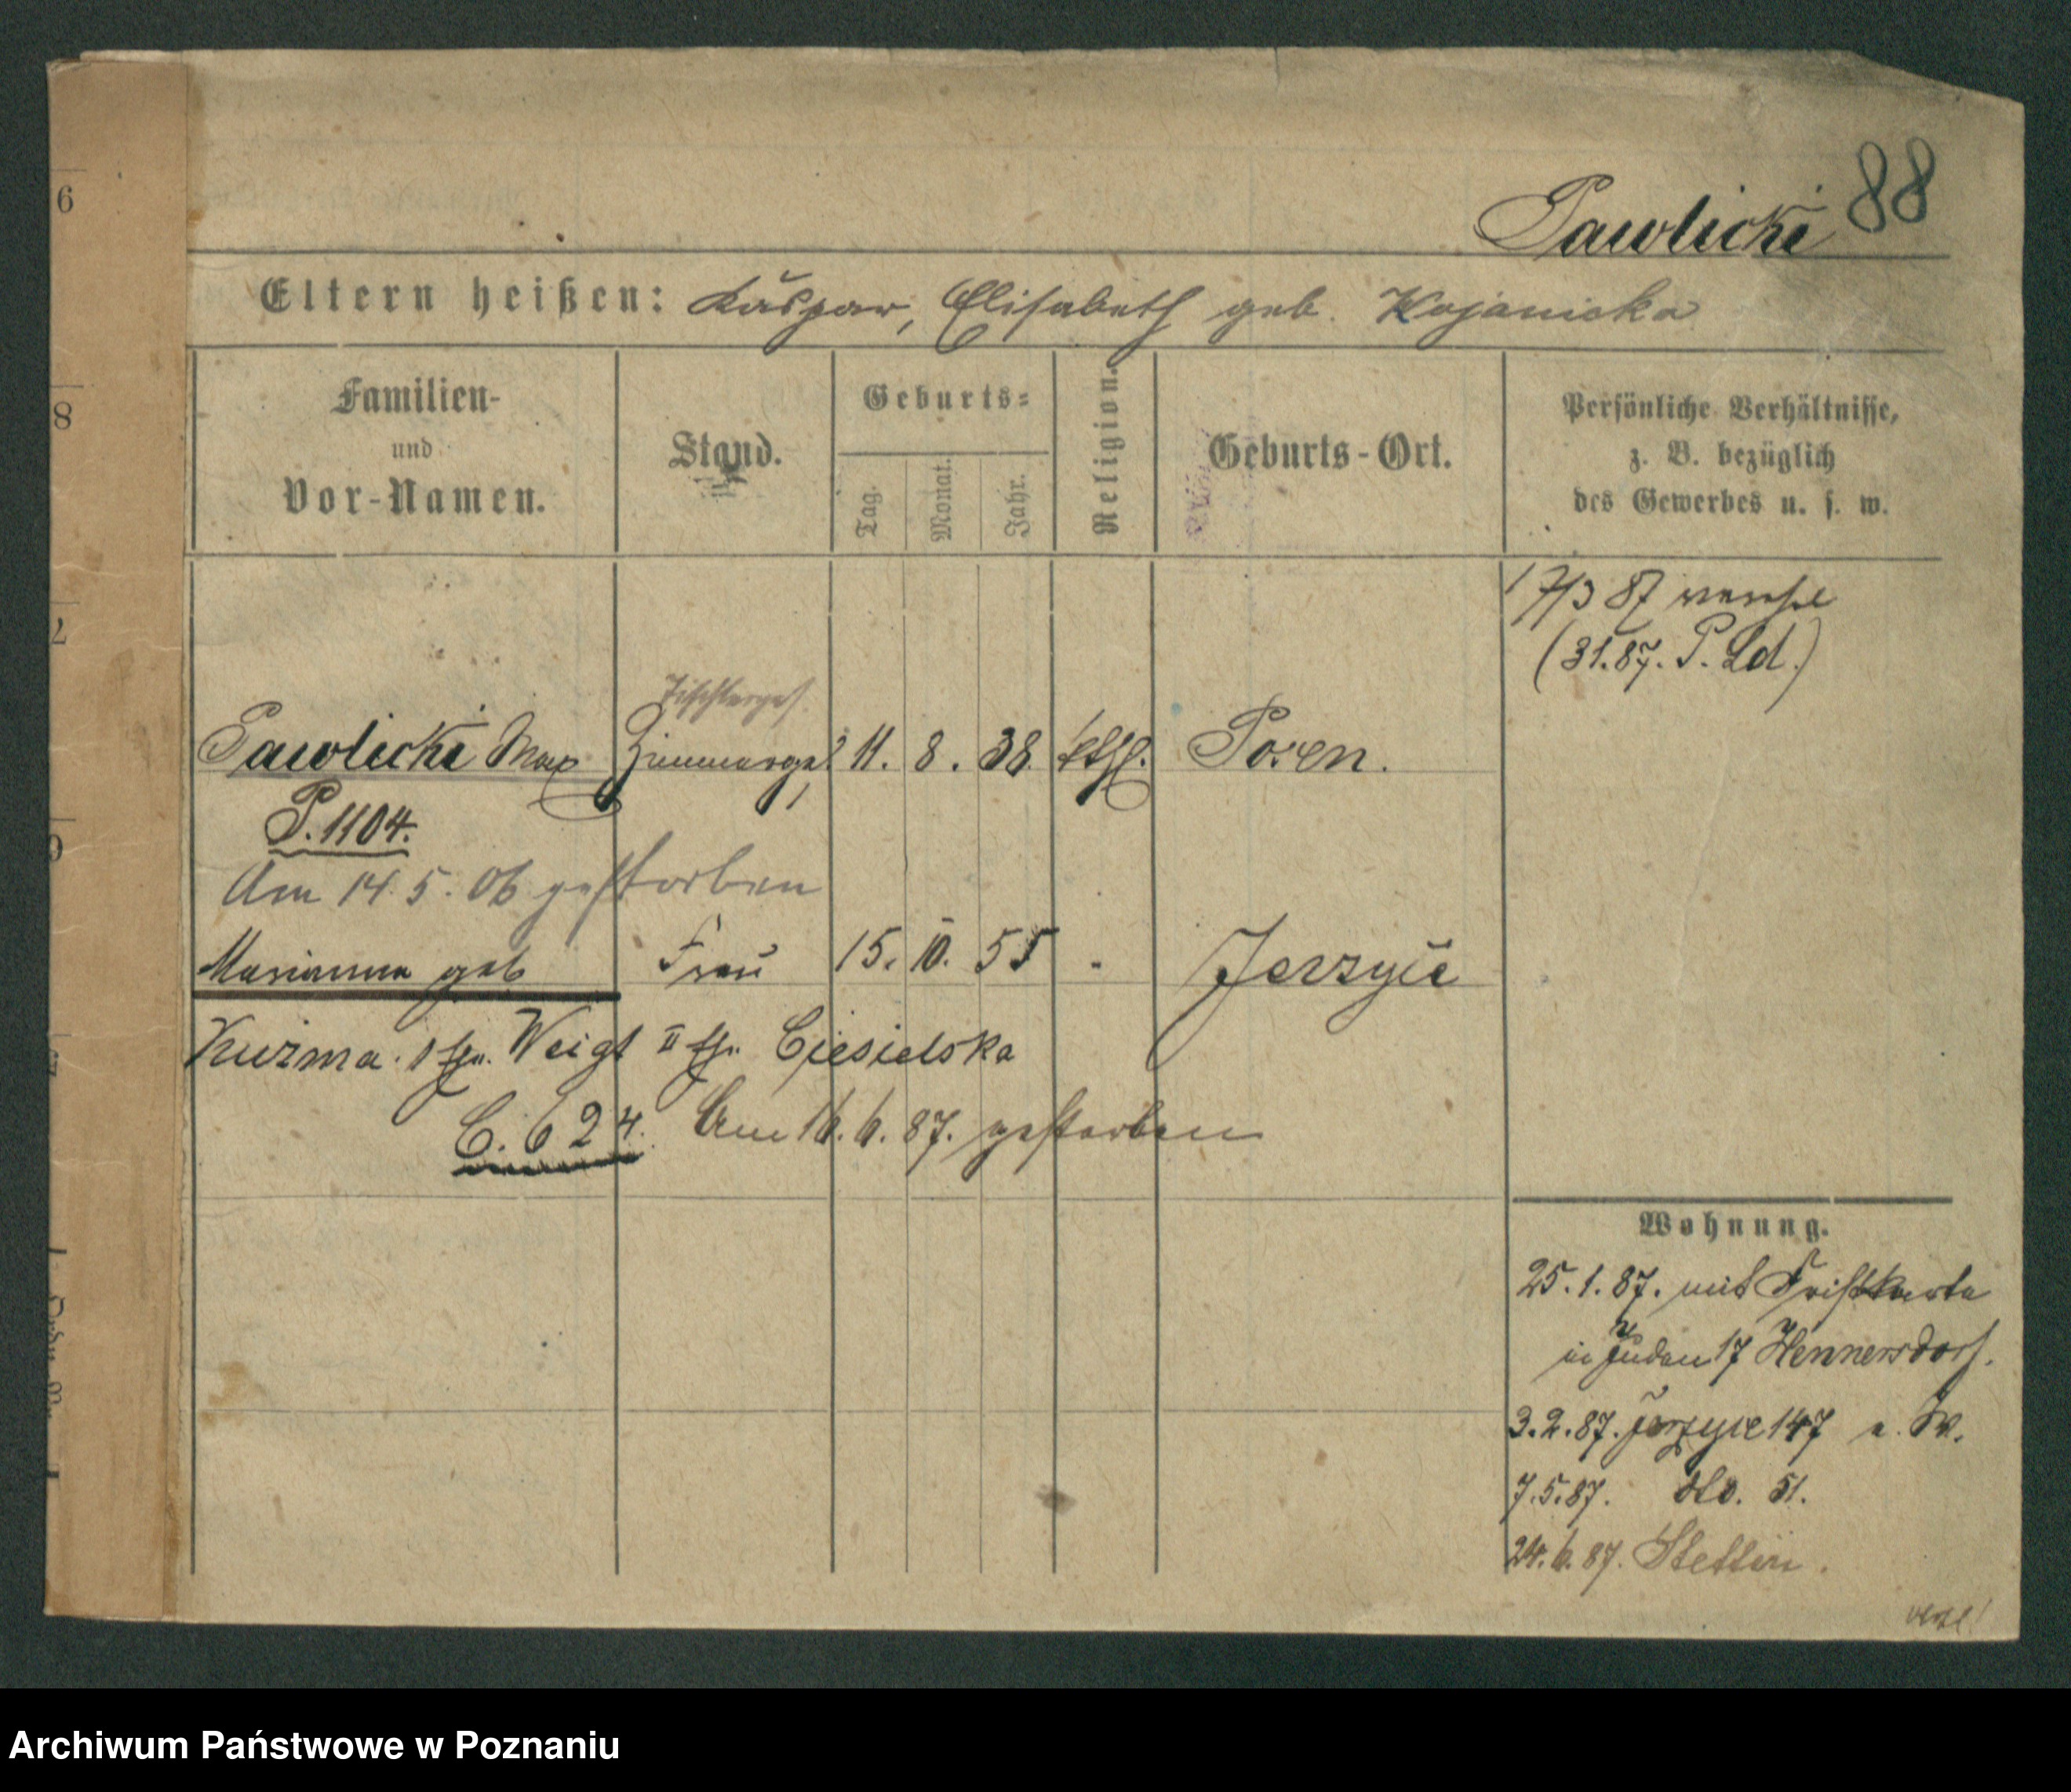 88
Pawlicki
Eltern heißen: Kaspar, Elisabeth geb. Kojanicka
Familien-
und
Vor-Namen.
Stand.
Geburts-
Tag.
Monat.
Jahr.
Religion.
Geburts-Ort.
Persönliche Verhältnisse,
z. B. bezüglich
des Gewerbes u. s. w.
17/3 87
(31.87. P. Ld.)
Tischlerges.
Pawlicki Max Zimmerges. 11. 8. 38. kthl. Posen.
P. 1104.
Am 14. 5. 06 gestorben
Marianna geb Frau 15. 10. 55 Jerzyce
Kuzma. Weigt II Ciesielska
C. 624. Am 16. 6. 87. gestorben
Wohnung.
25. 1. 87. mit Fristkarte
in 17 Hennersdorf.
3. 2. 87. Jerzyce 147
7. 5. 87. dto. 51.
24. 6. 87. Stettin.
6
8
Archiwum Państwowe w Poznaniu